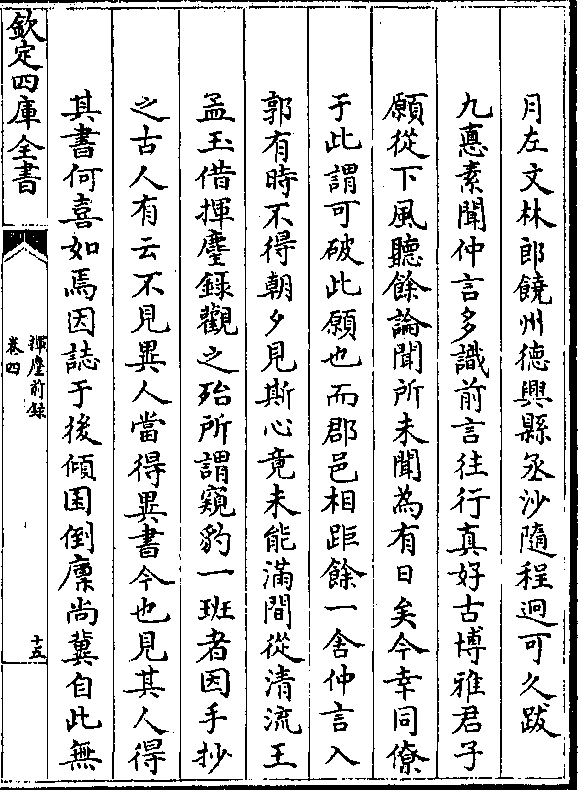 月左文林郎饒州德興縣丞沙隨程迥可久跋
九憙素聞仲言多識前言往行真好古博雅君子
願從下風聽餘論聞所未聞為有日矣今幸同僚
于此謂可破此願也而郡邑相距餘一舍仲言入
郭有時不得朝夕見斯心竟未能滿間從清流王
孟玉借揮麈錄觀之殆所謂窺豹一斑者因手抄
之古人有云不見異人當得異書今也見其人得
其書何喜如焉因誌于後傾囷倒廩尚冀自此無
欽定四庫全書
揮麈前錄
卷四
十五